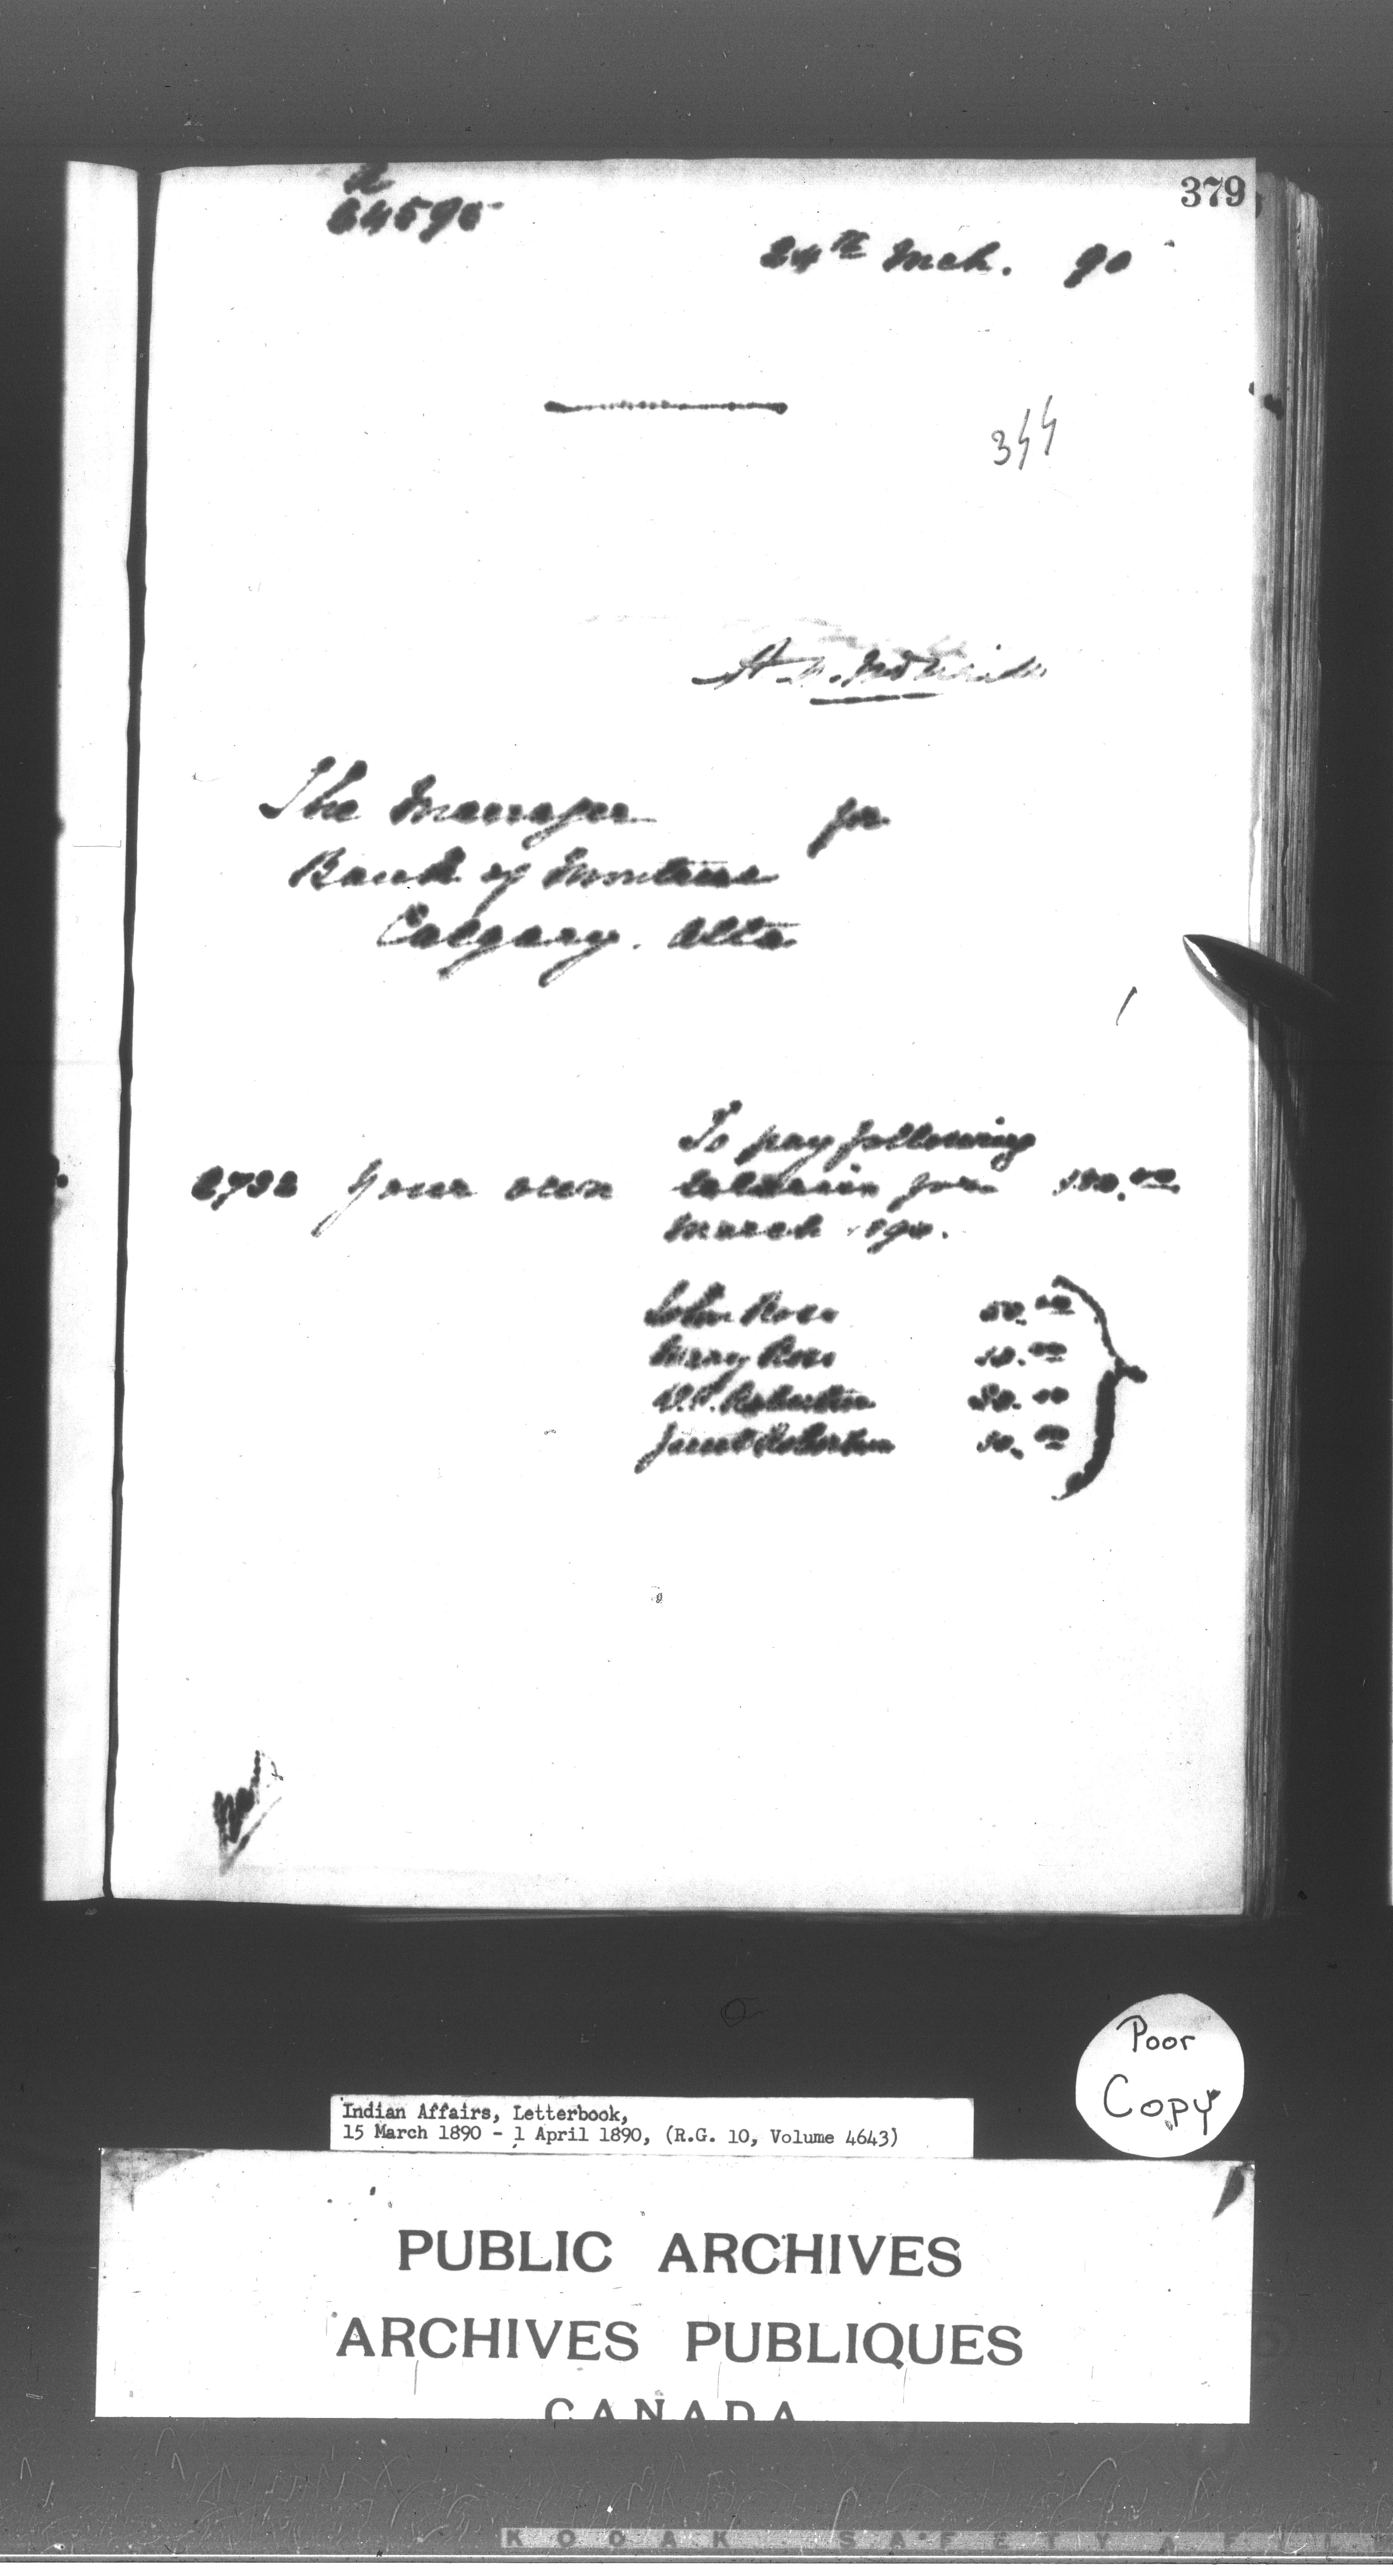 379
64595
24th Mch. 90
344
The Manager for
Bank of Montreal
Calgary. Alta
To pay following
2732 Your own salaries for
March 1890.
John Ross
Mary Ross
Robertson
Janet Robertson
Poor
Copy
Indian Affairs, Letterbook,
15 March 1890 - 1 April 1890, (R.G. 10, Volume 4643)
PUBLIC ARCHIVES
ARCHIVES PUBLIQUES
CANADA
KODAK SAFETY A FIL